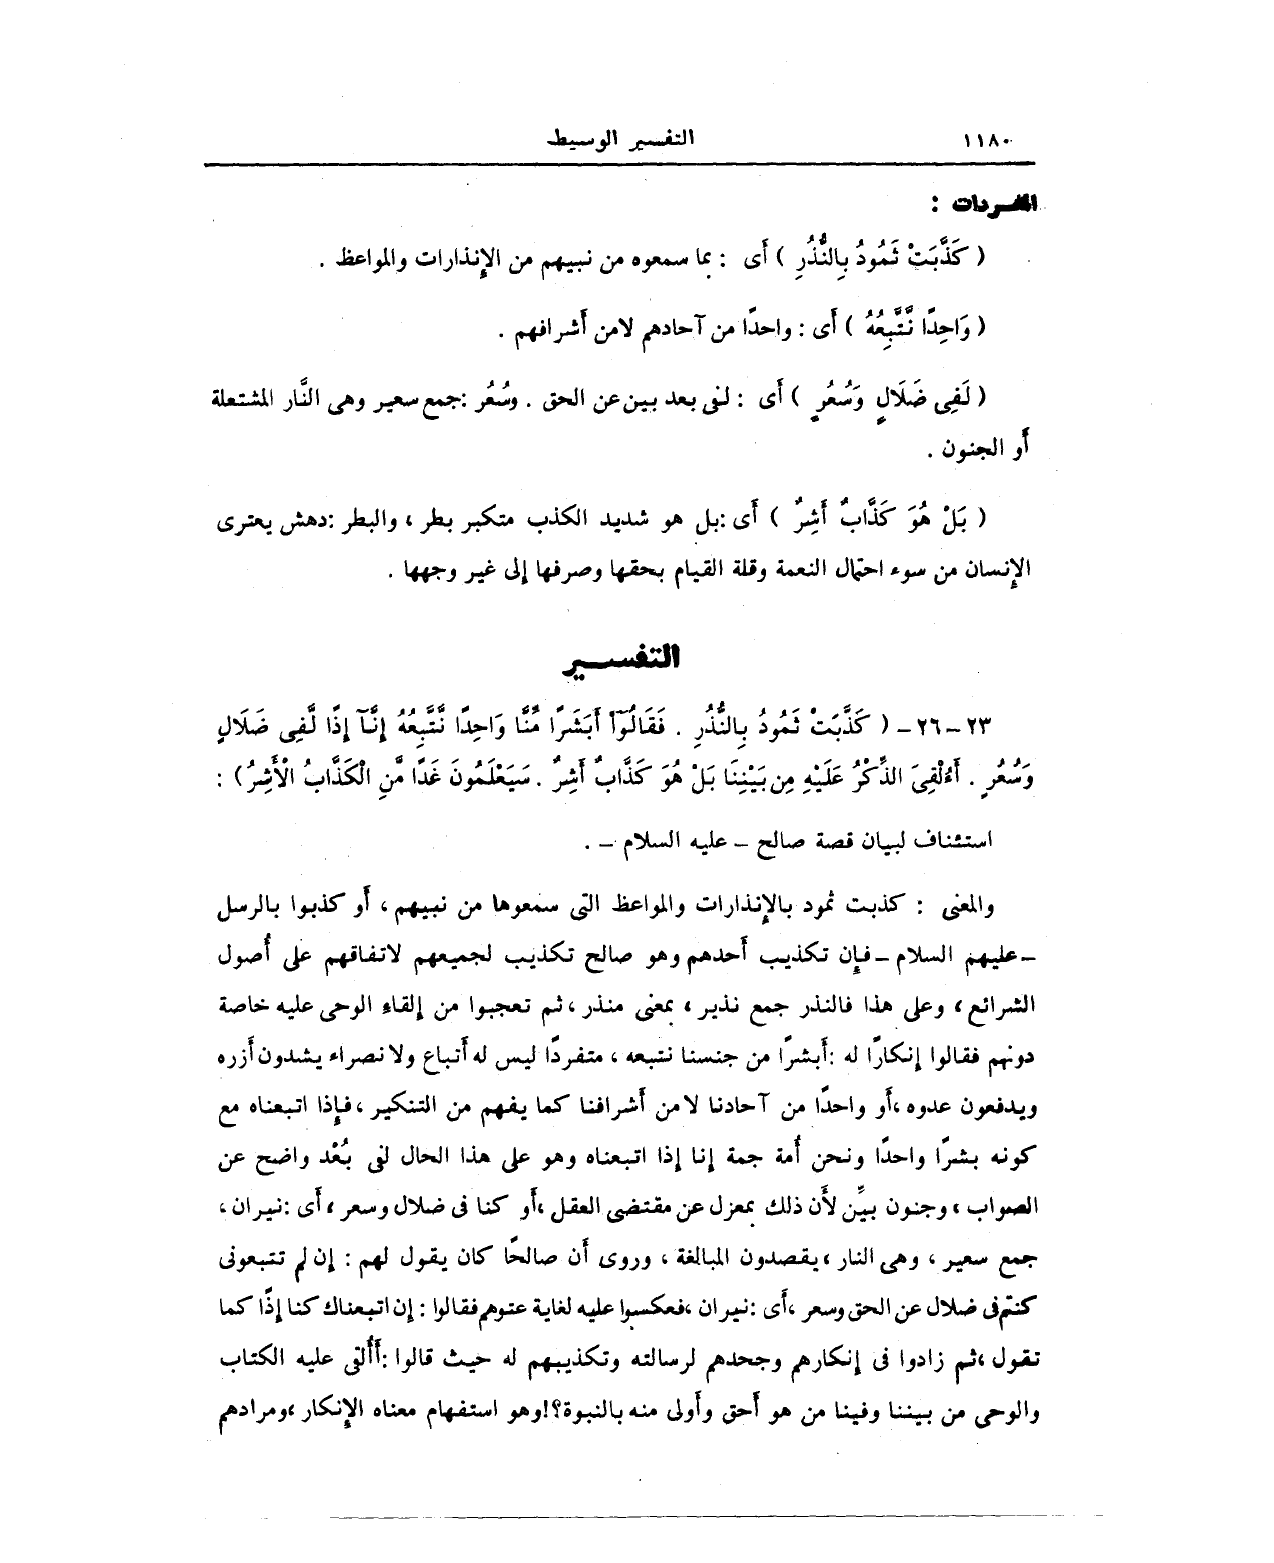 ١١٨٠ التفسير الوسيط
المفردات :
( كَذَّبَتْ ثَمُودُ بِالنُّذُرِ ) أَى : بما سمعوه من نبيهم من الإنذارات والمواعظ .
( وَاحِدًا نَّتَّبِعُهُ ) أَى : واحدًا من آحادهم لامن أَشرافهم .
( لَفِى ضَلَالٍ وَسُعُرٍ ) أَى : لفى بعد بين عن الحق . وسُعُر :جمع سعير وهى النَّار المشتعلة
أَو الجنون .
( بَلْ هُوَ كَذَّابٌ أَشِرٌ ) أَى :بل هو شديد الكذب متكبر بطر ، والبطر :دهش يعترى
الإنسان من سوء احتمال النعمة وقلة القيام بحقها وصرفها إلى غير وجهها .
التفسير
٢٣ - ٢٦ - ( كَذَّبَتْ ثَمُودُ بِالنُّذُرِ . فَقَالُوٓاْ أَبَشَرًا مِّنَّا وَاحِدًا نَّتَّبِعُهُ إِنَّآ إِذًا لَّفِى ضَلَالٍ
وَسُعُرٍ . أَءُلْقِىَ الذِّكْرُ عَلَيْهِ مِن بَيْنِنَا بَلْ هُوَ كَذَّابٌ أَشِرٌ . سَيَعْلَمُونَ غَدًا مَّنِ الْكَذَّابُ الْأَشِرُ ) :
استئناف لبيان قصة صالح - عليه السلام - .
والمعنى : كذبت ثمود بالإنذارات والمواعظ التى سمعوها من نبيهم ، أَو كذبوا بالرسل
- عليهم السلام - فإن تكذيب أَحدهم وهو صالح تكذيب لجميعهم لاتفاقهم على أُصول
الشرائع ، وعلى هذا فالنذر جمع نذير ، بمعنى منذر ، ثم تعجبوا من إلقاء الوحى عليه خاصة
دونهم فقالوا إنكارًا له :أَبشرًا من جنسنا نتبعه ، متفردًا ليس له أَتباع ولا نصراء يشدون أَزره
ويدفعون عدوه ،أَو واحدًا من آحادنا لامن أَشرافنا كما يفهم من التنكير ، فإذا اتبعناه مع
كونه بشرًا واحدًا ونحن أُمة جمة إنا إذا اتبعناه وهو على هذا الحال لفى بُعْد واضح عن
الصواب ، وجنون بيِّن لأَن ذلك بمعزل عن مقتضى العقل ،أَو كنا فى ضلال وسعر ، أَى :نيران ،
جمع سعير ، وهى النار ،يقصدون المبالغة ، وروى أَن صالحًا كان يقول لهم : إن لم تتبعونى
كنتم فى ضلال عن الحق وسعر ،أَى :نيران ،فعكسوا عليه لغاية عتوهم فقالوا : إن اتبعناك كنا إذًا كما
تقول ،ثم زادوا فى إنكارهم وجحدهم لرسالته وتكذيبهم له حيث قالوا :أَأُلقى عليه الكتاب
والوحى من بيننا وفينا من هو أَحق وأَولى منه بالنبوة؟!وهو استفهام معناه الإنكار ،ومرادهم